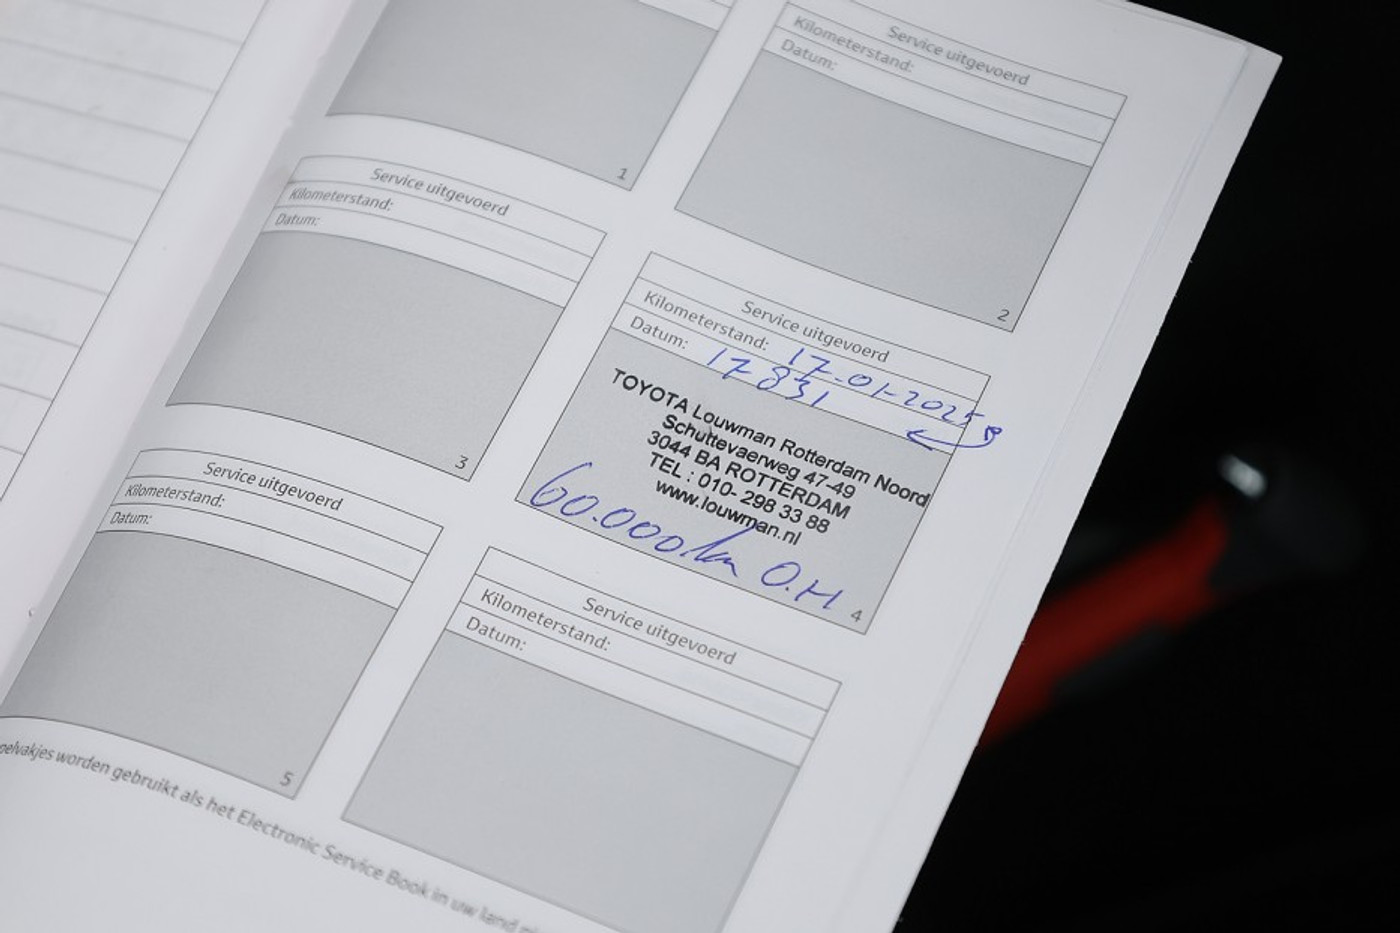 1
Service uitgevoerd
Kilometerstand:
Datum:
2
Service uitgevoerd
Kilometerstand:
Datum:
3
Service uitgevoerd
Kilometerstand: 17-01-2025
Datum: 17831
TOYOTA Louwman Rotterdam Noord
Schuttevaerweg 47-49
3044 BA ROTTERDAM
TEL : 010- 298 33 88
www.louwman.nl
60.000km O.H
4
Service uitgevoerd
Kilometerstand:
Datum:
5
Service uitgevoerd
Kilometerstand:
Datum:
worden gebruikt als het Electronic Service Book in uw land